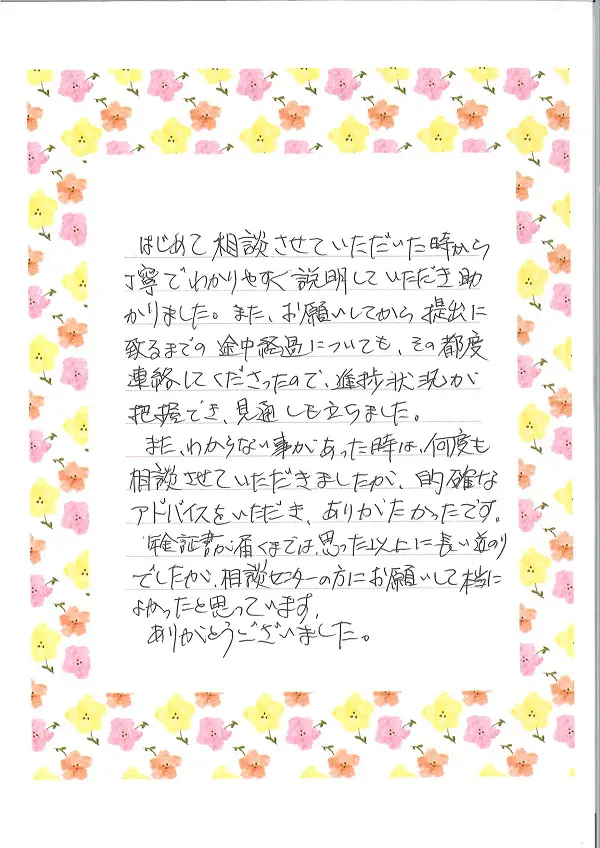 はじめて相談させていただいた時から
丁寧でわかりやすく説明していただき助
かりました。また、お願いしてから提出に
致るまでの途中経過についても、その都度
連絡してくださったので、進捗状況が
把握でき、見通しも立ちました。
また、わからない事があった時は、何度も
相談させていただきましたが、的確な
アドバイスをいただき、ありがたかったです。
年金証書が届くまでは、思った以上に長い道のり
でしたが、相談センターの方にお願いして本当に
よかったと思っています。
ありがとうございました。